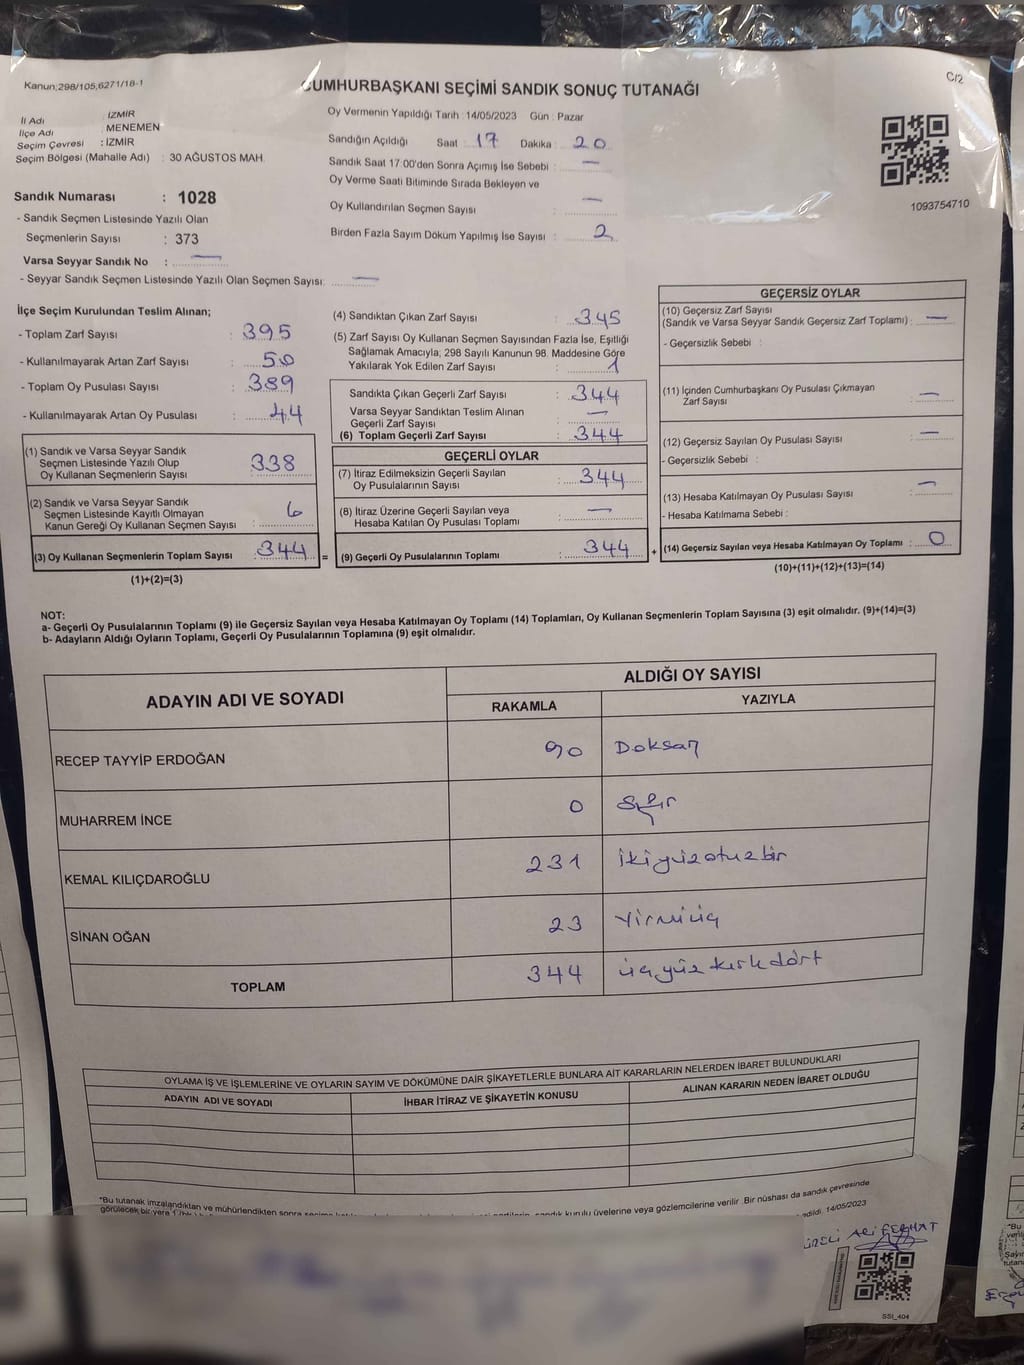 Kanun;298/105,6271/18-1
CUMHURBAŞKANI SEÇİMİ SANDIK SONUÇ TUTANAĞI
C/2
İl Adı : İZMİR
İlçe Adı : MENEMEN
Seçim Çevresi : İZMİR
Seçim Bölgesi (Mahalle Adı) : 30 AĞUSTOS MAH.
Sandık Numarası : 1028
- Sandık Seçmen Listesinde Yazılı Olan
Seçmenlerin Sayısı : 373
Varsa Seyyar Sandık No : —
- Seyyar Sandık Seçmen Listesinde Yazılı Olan Seçmen Sayısı: —
Oy Vermenin Yapıldığı Tarih : 14/05/2023 Gün : Pazar
Sandığın Açıldığı Saat : 17 Dakika : 20
Sandık Saat 17:00'den Sonra Açımış İse Sebebi : —
Oy Verme Saati Bitiminde Sırada Bekleyen ve
Oy Kullandırılan Seçmen Sayısı : —
Birden Fazla Sayım Döküm Yapılmış İse Sayısı : 2
1093754710
İlçe Seçim Kurulundan Teslim Alınan;
- Toplam Zarf Sayısı : 395
- Kullanılmayarak Artan Zarf Sayısı : 50
- Toplam Oy Pusulası Sayısı : 389
- Kullanılmayarak Artan Oy Pusulası : 44
(1) Sandık ve Varsa Seyyar Sandık
Seçmen Listesinde Yazılı Olup
Oy Kullanan Seçmenlerin Sayısı : 338
(2) Sandık ve Varsa Seyyar Sandık
Seçmen Listesinde Kayıtlı Olmayan
Kanun Gereği Oy Kullanan Seçmen Sayısı : 6
(3) Oy Kullanan Seçmenlerin Toplam Sayısı : 344 =
(1)+(2)=(3)
(4) Sandıktan Çıkan Zarf Sayısı : 345
(5) Zarf Sayısı Oy Kullanan Seçmen Sayısından Fazla İse, Eşitliği
Sağlamak Amacıyla; 298 Sayılı Kanunun 98. Maddesine Göre
Yakılarak Yok Edilen Zarf Sayısı : 1
Sandıkta Çıkan Geçerli Zarf Sayısı : 344
Varsa Seyyar Sandıktan Teslim Alınan
Geçerli Zarf Sayısı : —
(6) Toplam Geçerli Zarf Sayısı : 344
GEÇERLİ OYLAR
(7) İtiraz Edilmeksizin Geçerli Sayılan
Oy Pusulalarının Sayısı : 344
(8) İtiraz Üzerine Geçerli Sayılan veya
Hesaba Katılan Oy Pusulası Toplamı : —
(9) Geçerli Oy Pusulalarının Toplamı : 344 +
GEÇERSİZ OYLAR
(10) Geçersiz Zarf Sayısı
(Sandık ve Varsa Seyyar Sandık Geçersiz Zarf Toplamı) : —
- Geçersizlik Sebebi :
(11) İçinden Cumhurbaşkanı Oy Pusulası Çıkmayan
Zarf Sayısı : —
(12) Geçersiz Sayılan Oy Pusulası Sayısı : —
- Geçersizlik Sebebi :
(13) Hesaba Katılmayan Oy Pusulası Sayısı : —
- Hesaba Katılmama Sebebi :
(14) Geçersiz Sayılan veya Hesaba Katılmayan Oy Toplamı : 0
(10)+(11)+(12)+(13)=(14)
NOT:
a- Geçerli Oy Pusulalarının Toplamı (9) ile Geçersiz Sayılan veya Hesaba Katılmayan Oy Toplamı (14) Toplamları, Oy Kullanan Seçmenlerin Toplam Sayısına (3) eşit olmalıdır. (9)+(14)=(3)
b- Adayların Aldığı Oyların Toplamı, Geçerli Oy Pusulalarının Toplamına (9) eşit olmalıdır.
ADAYIN ADI VE SOYADI ALDIĞI OY SAYISI
RAKAMLA YAZIYLA
RECEP TAYYİP ERDOĞAN 90 Doksan
MUHARREM İNCE 0 Sıfır
KEMAL KILIÇDAROĞLU 231 ikiyüzotuzbir
SİNAN OĞAN 23 Yirmiüç
TOPLAM 344 üçyüz kırkdört
OYLAMA İŞ VE İŞLEMLERİNE VE OYLARIN SAYIM VE DÖKÜMÜNE DAİR ŞİKAYETLERLE BUNLARA AİT KARARLARIN NELERDEN İBARET BULUNDUKLARI
ADAYIN ADI VE SOYADI İHBAR İTİRAZ VE ŞİKAYETİN KONUSU ALINAN KARARIN NEDEN İBARET OLDUĞU
*Bu tutanak imzalandıktan ve mühürlendikten sonra sandık kurulu üyelerine veya gözlemcilerine verilir. Bir nüshası da sandık çevresinde
görülecek bir yere edildi. 14/05/2023
ALİ FERHAT
SSI_404